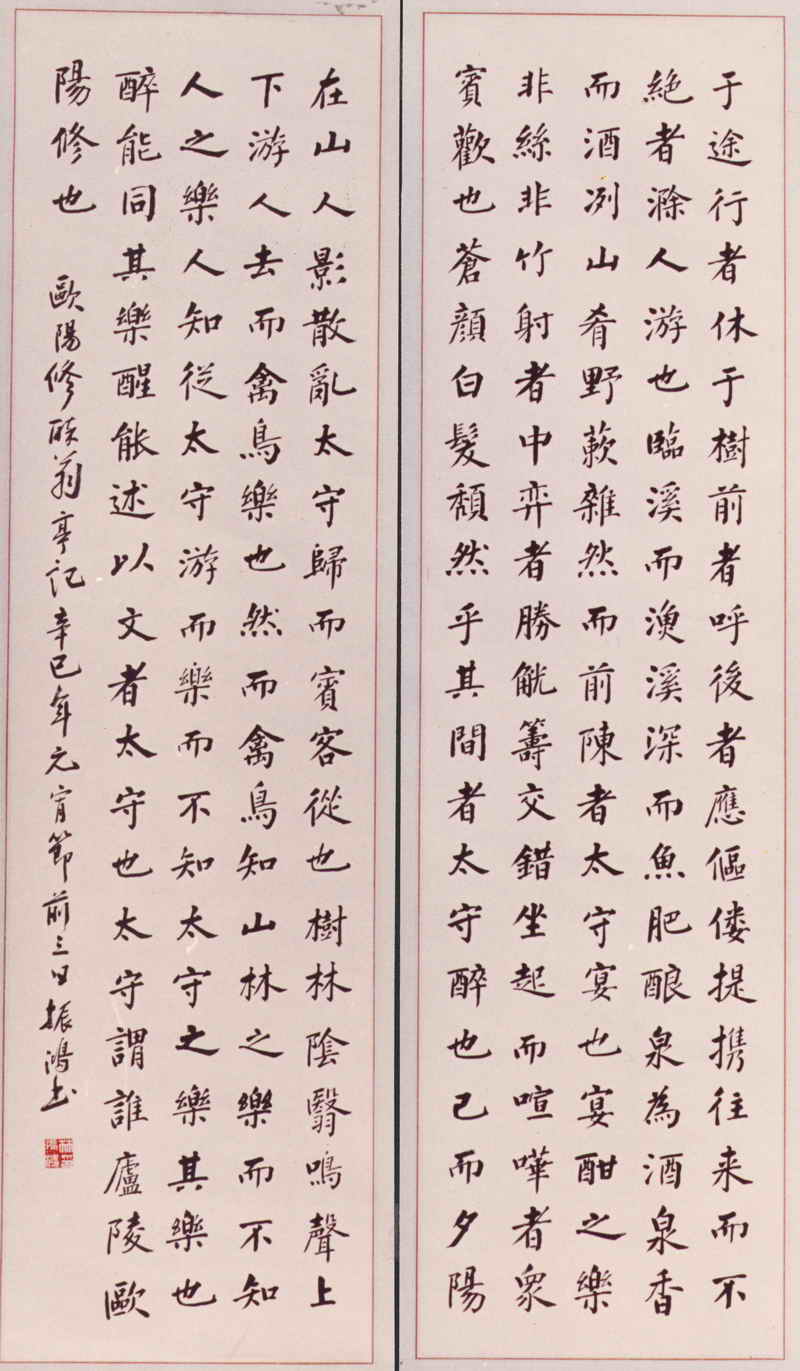 于途行者休于樹前者呼後者應傴僂提携往来而不
絶者滁人游也臨溪而漁溪深而魚肥酿泉為酒泉香
而酒冽山肴野蔌雜然而前陳者太守宴也宴酣之樂
非絲非竹射者中弈者勝觥籌交錯坐起而喧嘩者衆
賓歡也蒼顔白髮頹然乎其間者太守醉也已而夕陽
在山人影散亂太守歸而賓客從也樹林陰翳鳴聲上
下游人去而禽鳥樂也然而禽鳥知山林之樂而不知
人之樂人知從太守游而樂而不知太守之樂其樂也
醉能同其樂醒能述以文者太守也太守謂誰廬陵歐
陽修也
歐陽修醉翁亭記辛巳年元宵節前三日振鴻书